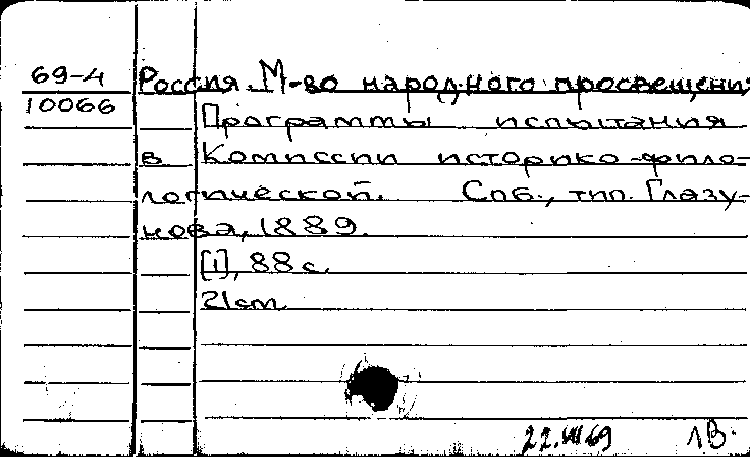 69-4
10066
Россия. М-во народного просвещения
Программы испытания
в Комиссии историко-фило=
логической. Спб., тип. Глазу-
нова, 1889.
[1], 88 с.
21 cm
22.VII 69 Л.В.